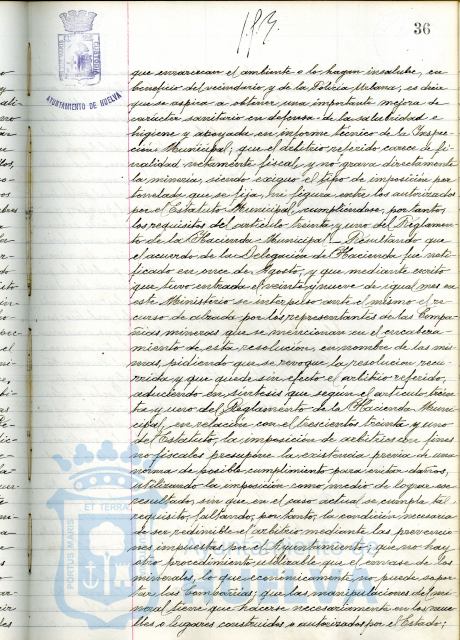 36
AYUNTAMIENTO DE HUELVA
que enrarezcan el ambiente o lo hagan insalubre, en
beneficio del vecindario y de la Policía Urbana, es decir
que se aspira a obtener una importante mejora de
carácter sanitario en defensa de la salubridad e
higiene y apoyada en informe técnico de la Inspec-
ción Municipal; que el arbitrio referido carece de fi-
nalidad netamente fiscal, y no grava directamente
la minería, siendo exiguo el tipo de imposición por
tonelada que se fija, ni figura entre los autorizados
por el Estatuto Municipal, cumpliéndose, por tanto,
los requisitos del artículo treinta y uno del Reglamen-
to de la Hacienda Municipal. Resultando que
el acuerdo de la Delegación de Hacienda fué noti-
ficado en once de Agosto, y que mediante escrito
que tuvo entrada el veinte y nueve de igual mes en
este Ministerio se interpuso ante el mismo el re-
curso de alzada por los representantes de las Compa-
ñías mineras que se mencionan en el encabeza-
miento de esta resolución, en nombre de las mis-
mas, pidiendo que se revoque la resolución recu-
rrida y que quede sin efecto el arbitrio referido,
aduciendo en síntesis que según el artículo trein-
ta y uno del Reglamento de la Hacienda Muni-
cipal, en relación con el trescientos treinta y uno
del Estatuto, la imposición de arbitrios con fines
no fiscales presupone la existencia previa de una
norma de posible cumplimiento para evitar daños,
utilizando la imposición como medio de lograr ese
resultado, sin que en el caso actual se cumpla tal
requisito, faltando, por tanto, la condición necesaria
de ser redimible el arbitrio mediante las prevencio-
nes impuestas por el Ayuntamiento; que no hay
otro procedimiento utilizable que el envase de los
minerales, lo que económicamente no puede sopor-
tar las Compañías; que las manipulaciones del mi-
neral tiene que hacerse necesariamente en los mue-
lles o lugares construidos o autorizados por el Estado;
PORTUS MARIS
ET TERRAE